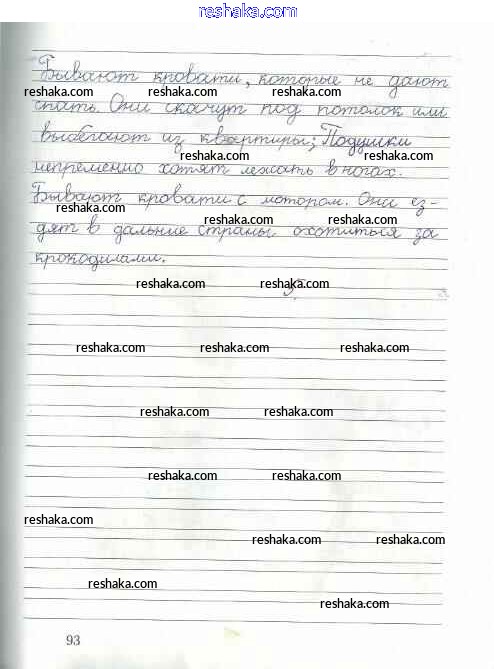 reshaka.com
Бывают кровати, которые не дают
reshaka.com reshaka.com reshaka.com
спать. Они скачут под потолок или
выбегают из квартиры; Подушки
reshaka.com reshaka.com
непременно хотят лежать в ногах.
Бывают кровати с мотором. Они ез-
reshaka.com reshaka.com reshaka.com
дят в дальние страны охотиться за
крокодилами.
reshaka.com reshaka.com
reshaka.com reshaka.com reshaka.com
reshaka.com reshaka.com
reshaka.com reshaka.com
reshaka.com
reshaka.com reshaka.com
reshaka.com
reshaka.com
93